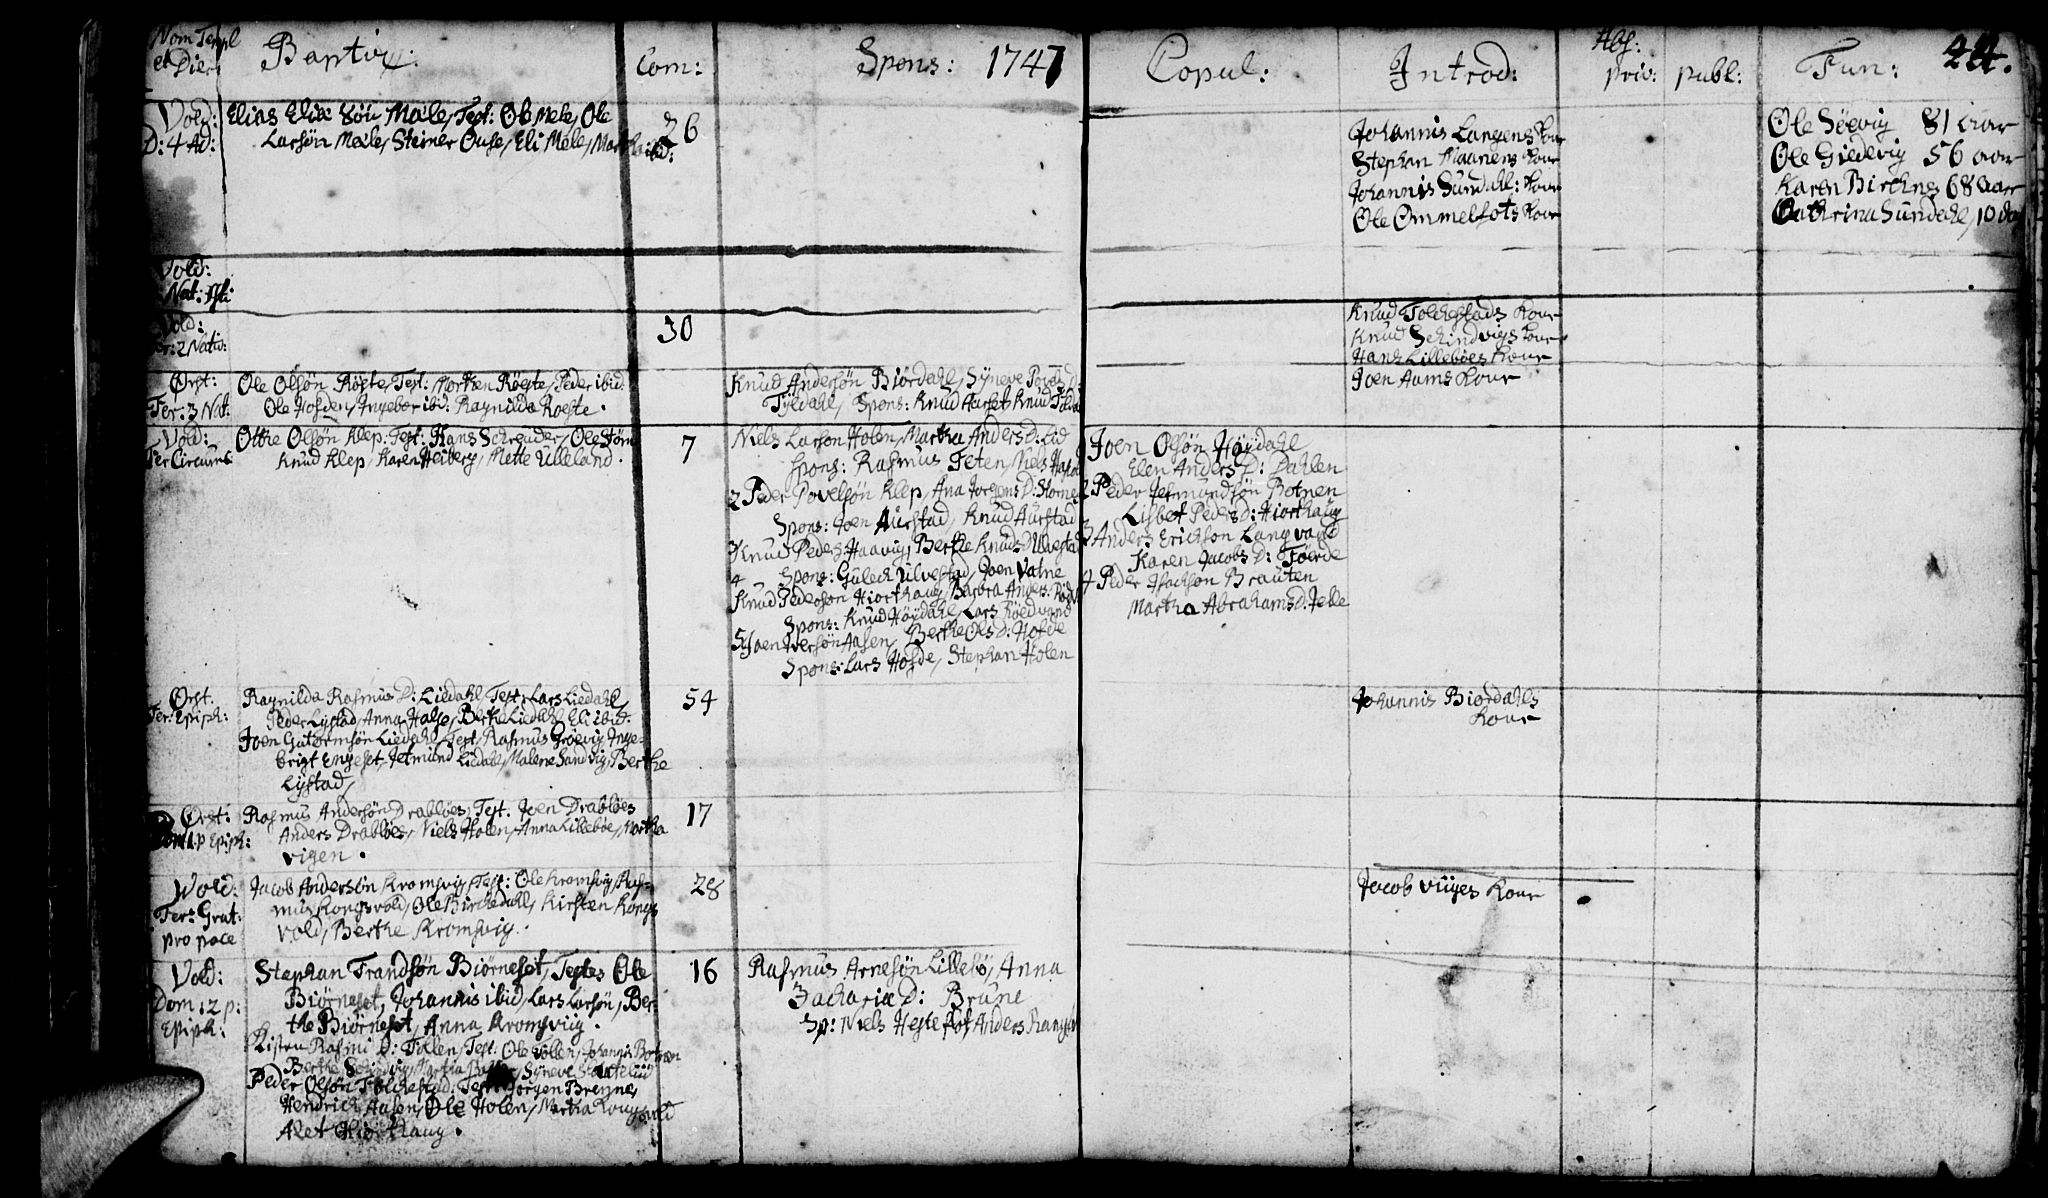 Nom Templ
et Dier
Baptiz:
Com:
Spons: 1747
Copul:
Introd:
Abs:
priv: publ:
Fun:
24.
Vold:
D: 4 Ad:
Elias Eliæ Søn Mæle, Test: Ole Mele, Ole
Larsøn Mæle, Steiner Ouse, Eli Mele, Martha ibid:
26
Johannis Langens Kone
Stephan Maanens Kone
Johannis Sundahl: Kone
Ole Ommelfots Kone
Ole Søevig 81 aar
Ole Giedevig 56 aar
Karen Birchnes 68 aar
Cathrina Sundahl, 10 dag
Vold:
Nat:
Vold:
Fer: 2 Nativ:
30
Knud Folchestads Kone
Knud Schindvigs Kone
Hans Lillebøes Kone
Ørst:
Fer: 3 Nat:
Ole Olsøn Røste, Test: Morten Røeste, Peder ibid.
Ole Hofden, Ingebor ibid: Raynilda Roeste.
Knud Andersøn Biørdahl, Syneve Povels D:
Tyldahl, Spons: Knud Aurset Knud
Joen Aams Kone
Vold:
Fer Circums:
Otthe Olsøn Klep: Test: Hans Schreuder, Ole Størn
Knud Klep, Karen Heiberg, Mette Ulleland.
7
Niels Larsøn Holen, Martha Anders D: Lid
Spons: Rasmus Teten, Niels
2 Peder Povelsøn Klep, Ana Jorgens D:
Spons: Joen Aurstad, Knud Aurstad
3 Knud Peders Haavig, Berthe Knuds D Ulvestad
Spons: Guleck Ulvestad, Joen Vatne
4
Knud Pedersøn Hiorthaug, Barbra Anders:
Spons: Knud Høydahl, Lars Røedvand
5 Joen Iversøn Aasen, Berthe Ols D: Hofde
Spons: Lars Hofde, Stephan Holen
Joen Olsøn Høydahl
Elen Anders D: Dahlen
2 Peder Jetmundsøn Botnen
Lisbet Peders D: Hiorthaug
3 Anders Erichsøn Langvand
Karen Jacobs D: Føerde
4 Peder Isachsøn Brauten
Martha Abrahams D:
Ørst.
Fer: Epiph:
Raynilda Rasmus D: Liedahl, Test: Lars Liedahl,
Peder Lystad, Anna Halse, Berthe Liedahl Eli ibid.
Joen Gutormsøn Liedahl, Test, Rasmus Grøevig Inge-
brigt Engeset, Jetmund Liedahl, Malene Sandvig, Berthe
Lystad,
54
Johannis Biørdahls
Kone
Ørst:
Dom 1. p Epiph:
Rasmus Andersøn Drabløes, Test. Joen Drabløes
Anders Drabløes, Niels Holen, Anna Lillebøe, Martha
Vigen.
17
Vold:
Fer: Grat:
pro pace
Jacob Andersøn Kromsvig, Test: Ole Kromsvig, Ras-
mus Kongsvold, Ole Birchedahl, Kirsten Kongs
vold, Berthe Kromsvig.
28
Jacob Viiges Kone
Vold:
Dom: 2 p:
Epiph:
Stephan Frandsøn Biørneset, Testes Ole
Biørneset, Johannis ibid, Lars Larsøn, Ber-
the Biørneset, Anna Kromsviig.
16
Rasmus Arnesøn Lillebø, Anna
Zachariæ D: Brune
Sp: Niels Hestefot Anders
Kisten Rasmi D: Follen, Test: Ole Vollen, Johannis Botnen
Berthe Syneve
Peder Olsøn Folchestad: Test: Jørgen Breynes
Hendrich Aasen, Ole Holen, Martha Kongsvold
Alet Hiorthaug.